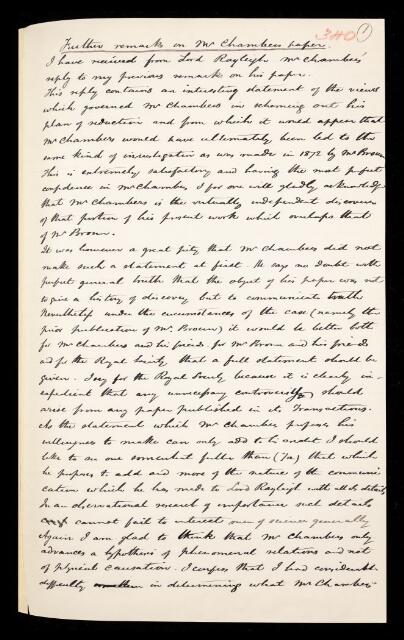 340 1
Further remarks on Mr Chambers paper.
I have received from Lord Rayleigh Mr Chambers'
reply to my previous remarks on his paper.
This reply contains an interesting statement of the views
which governed Mr Chambers in scheming out his
plan of reduction and from which it would appear that
Mr Chambers would have ultimately been led to the
same kind of investigation as was made in 1872 by Mr Broun
This is extremely satisfactory and having the most perfect
confidence in Mr Chambers I for one will gladly acknowledge
that Mr Chambers is the virtually independent discoverer
of that portion of his present work which overlaps that
of Mr Broun.
It was however a great pity that Mr Chambers did not
make such a statement at first. He says no doubt with
perfect general truth that the object of his paper was not
to give a history of discovery but to communicate truth
Nevertheless under the circumstances of the case (namely the
prior publication of Mr. Broun) it would be better both
for Mr Chambers and his friends for Mr Broun and his friends
and for the Royal Society that a full statement should be
given. I say for the Royal Society because it is clearly in-
expedient that any unnecessary controversy should
arise from any paper published in its Transactions.
As the statement which Mr Chambers proposes his
willingness to make can only add to his credit I should
like to see one somewhat fuller than (7a) that which
he proposes to add and more of the nature of the communi-
cation which he has made to Lord Rayleigh with all its details
In an observational research of importance such details
cannot fail to interest men of science generally
Again I am glad to think that Mr Chambers only
advances a hypothesis of phenomenal relations and not
of physical causation. I confess that I had considerable
difficulty in determining what Mr Chambers